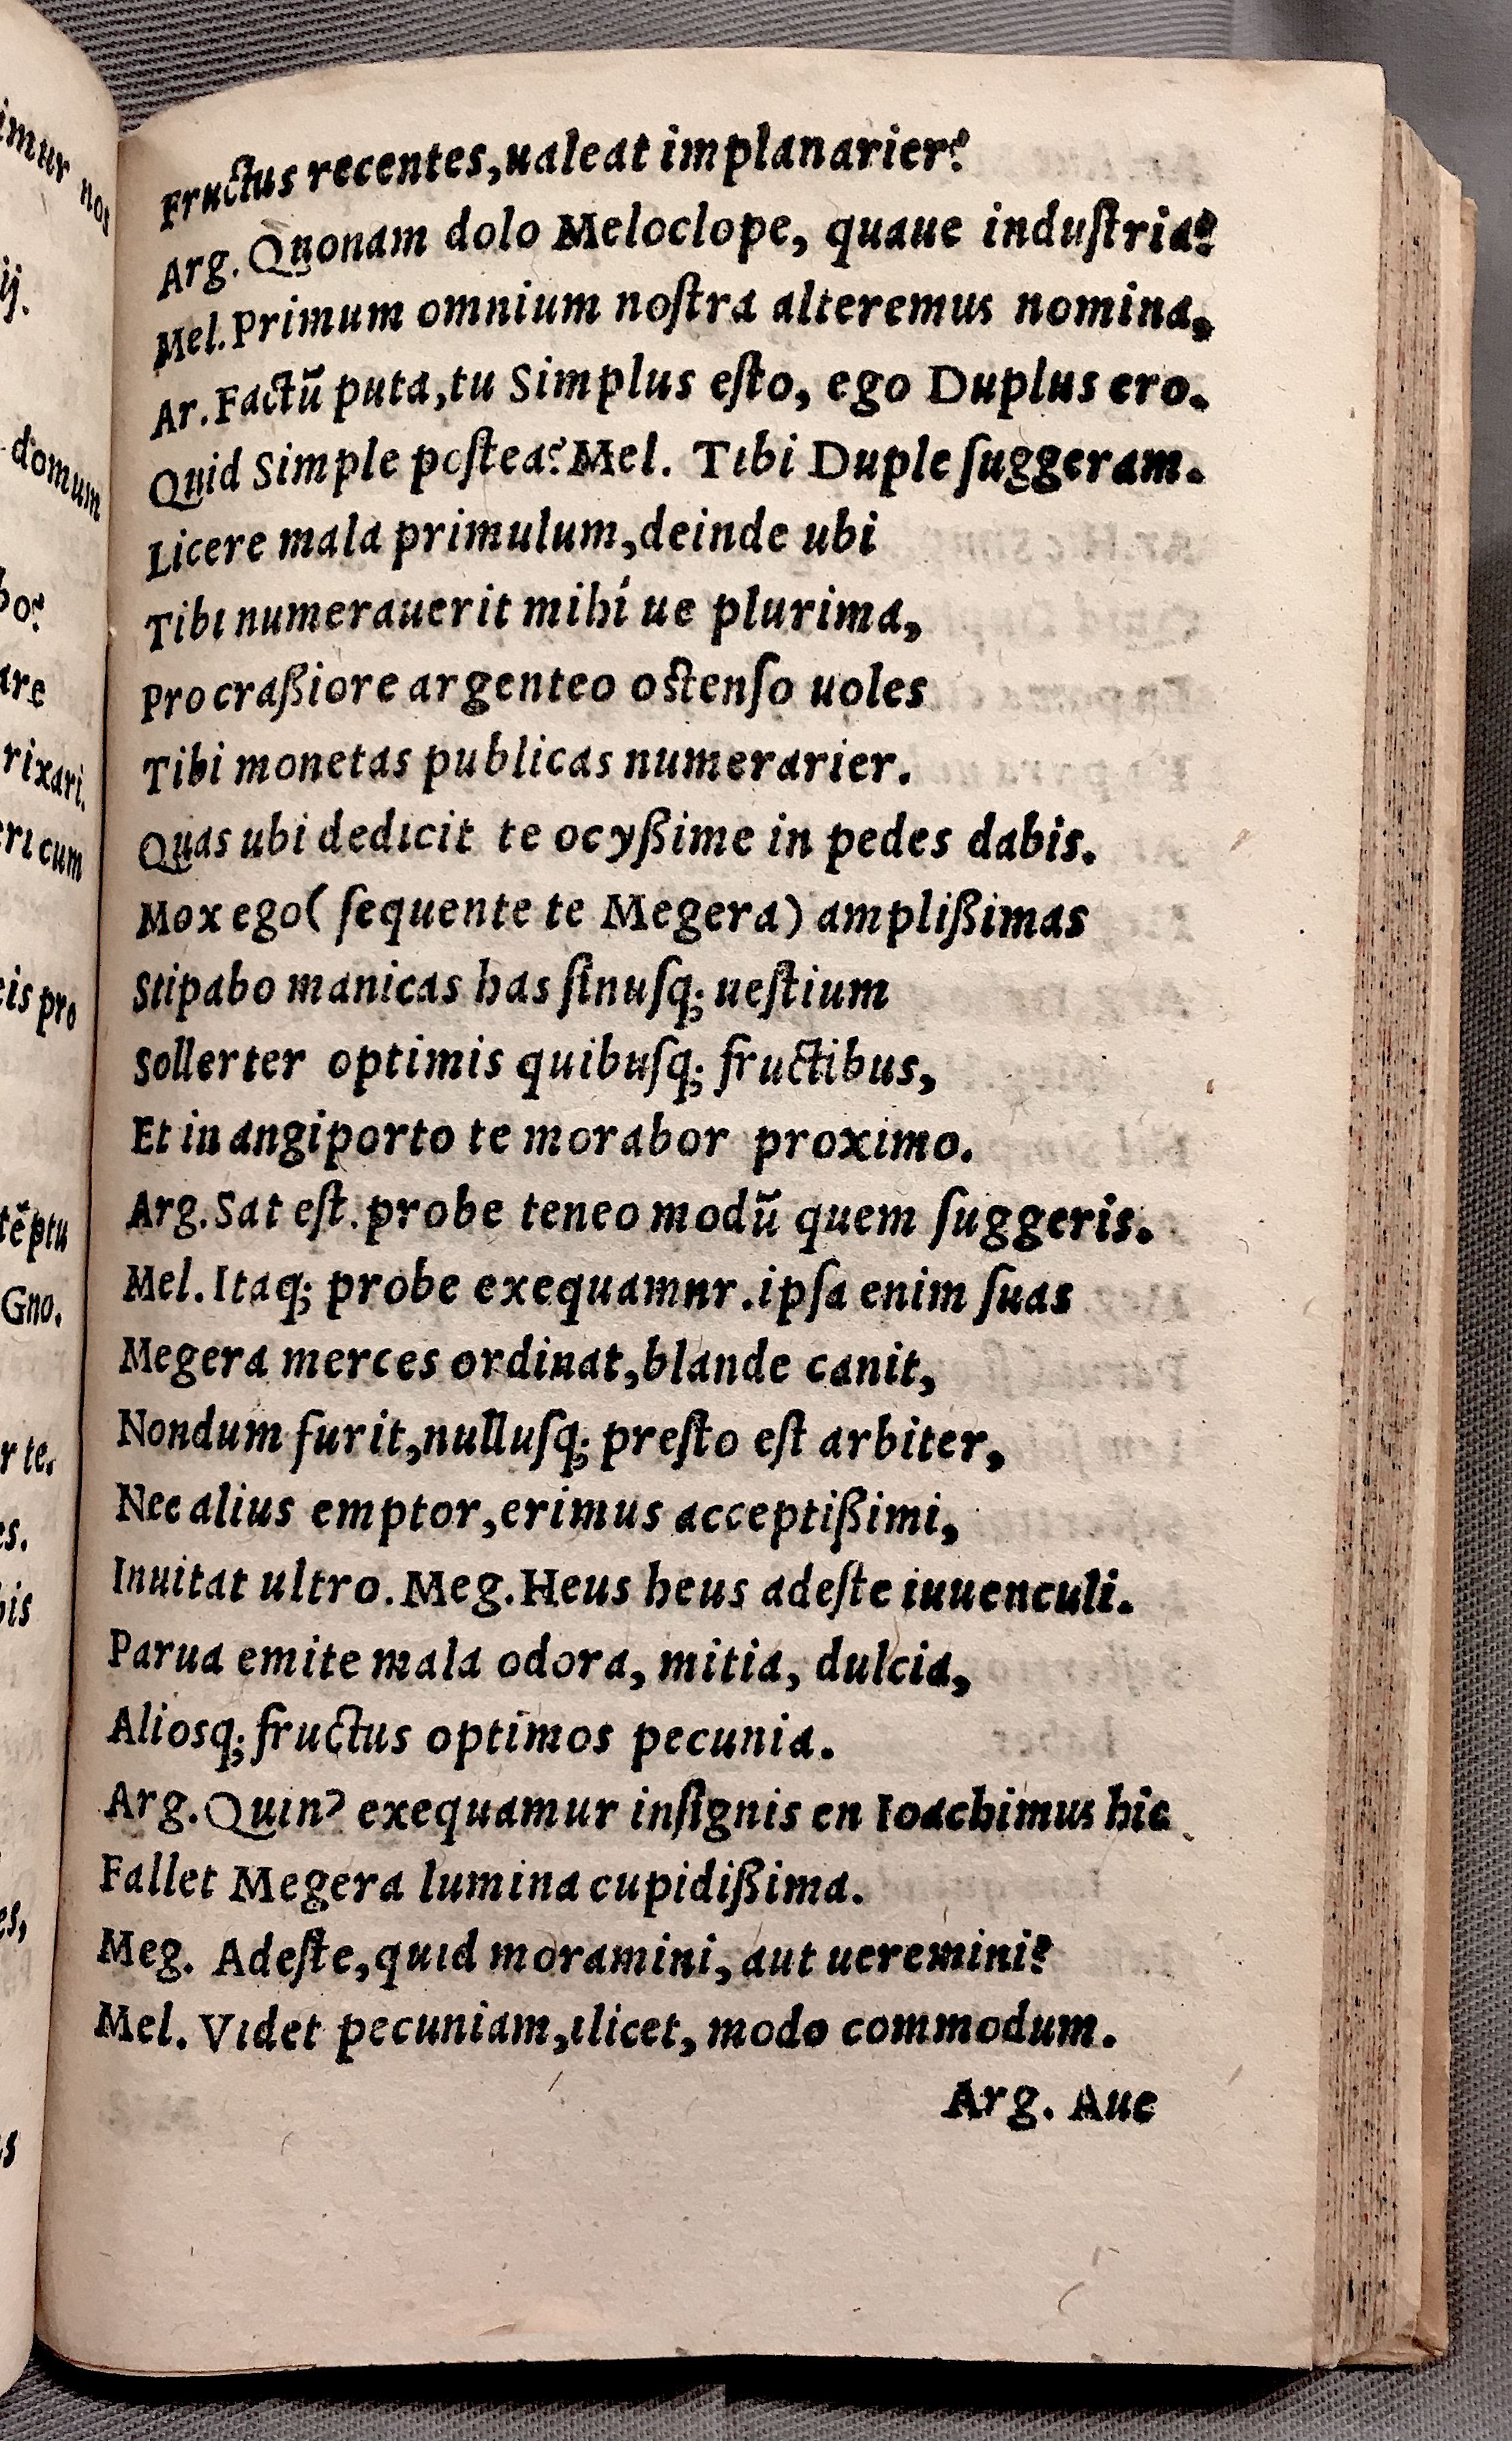 Fructus recentes,ualeat implanarier?
Arg. Quonam dolo Meloclope, quaue induſtria?
Mel. Primum omnium noſtra alteremus nomina,
Ar. Factū puta,tu Simplus eſto, ego Duplus ero.
Quid Simple poſtea? Mel. Tibi Duple ſuggeram.
Licere mala primulum,deinde ubi
Tibi numerauerit mihí ue plurima,
Pro craßiore argenteo oſtenſo uoles
Tibi monetas publicas numerarier.
Quas ubi dedicit te ocyßime in pedes dabis.
Mox ego( ſequente te Megera) amplißimas
Stipabo manicas has ſinuſq; ueſtium
Sollerter optimis quibuſq; fructibus,
Et in angiporto te morabor proximo.
Arg. Sat eſt. probe teneo modū quem ſuggeris.
Mel. Itaq; probe exequamnr .ipſa enim ſuas
Megera merces ordinat,blande canit,
Nondum furit,nulluſq; preſto eſt arbiter,
Nec alius emptor,erimus acceptißimi,
Inuitat ultro. Meg. Heus heus adeſte iuuenculi.
Parua emite mala odora, mitia, dulcia,
Aliosq; fructus optimos pecunia.
Arg. Quin? exequamur inſignis en Ioachimus hic
Fallet Megera lumina cupidißima.
Meg. Adeſte,quid moramini, aut ueremini?
Mel. Videt pecuniam,ilicet, modo commodum.
Arg. Aue